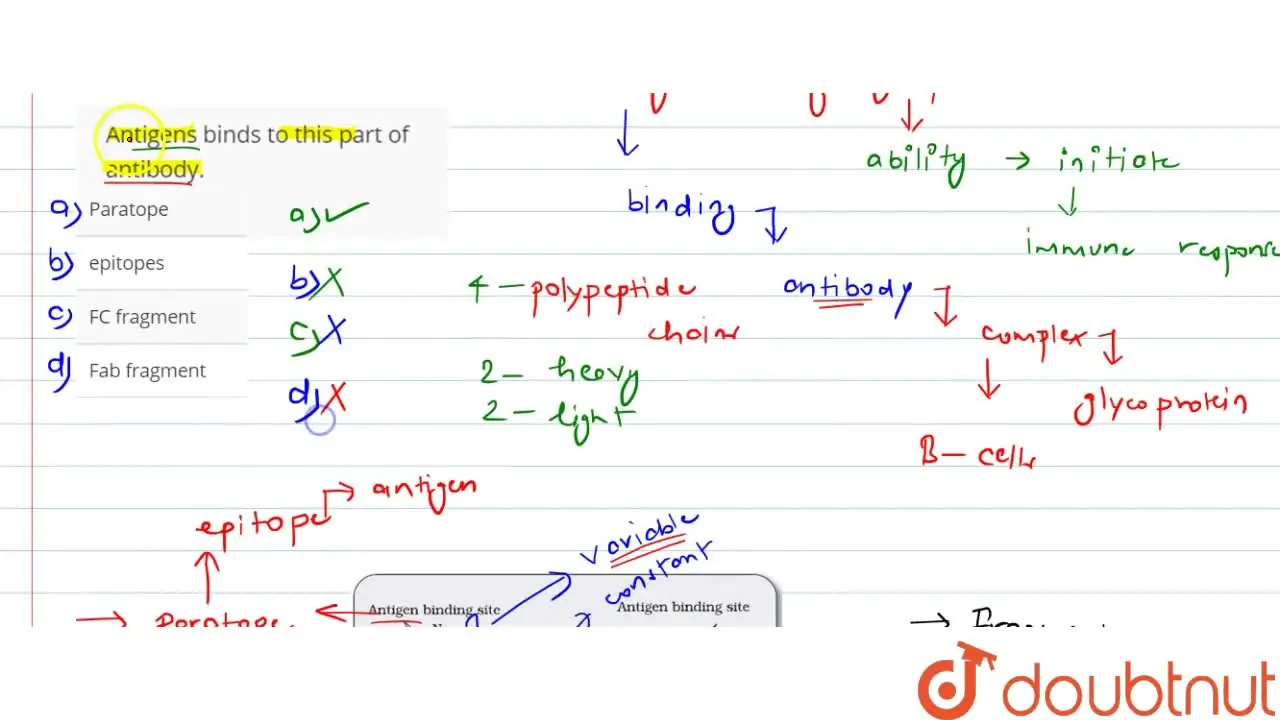 Antigens binds to this part of
antibody.
a) Paratope
b) epitopes
c) FC fragment
d) Fab fragment
a) ✓
b) X
c) X
d) X
ability → initiate
immune response
binding
antibody
4 – polypeptide
chains
2 – heavy
2 – light
complex
glycoprotein
B – cells
epitope → antigen
variable
constant
Antigen binding site
Antigen binding site
→ Paratope
doubtnut